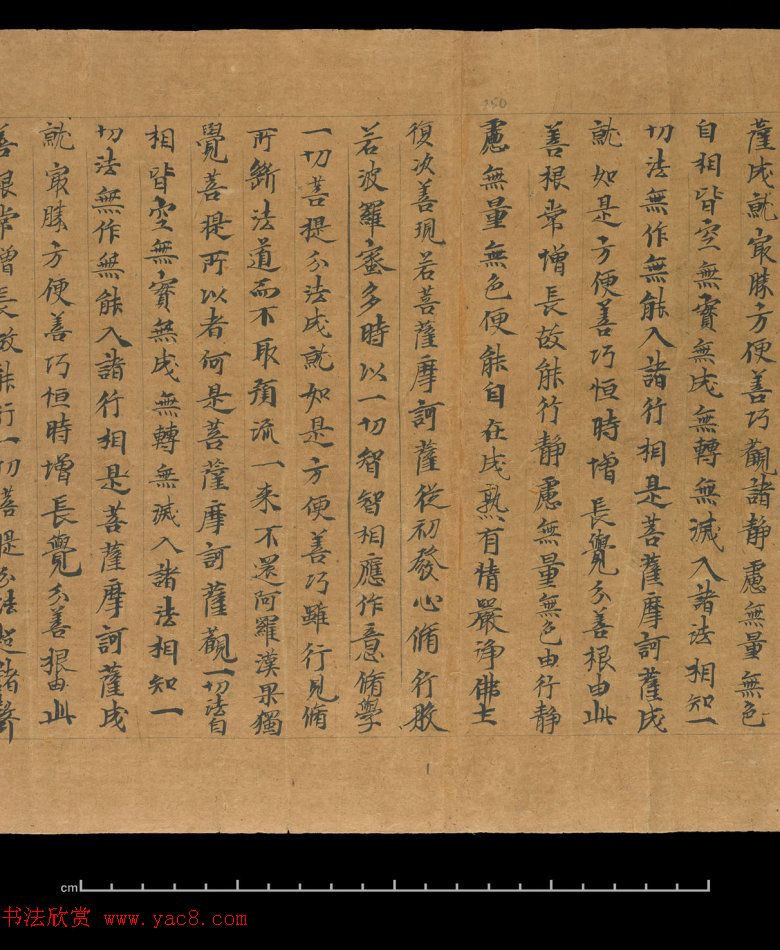 薩成就冣勝方便善巧觀諸静慮無量無色
自相皆空無實無成無轉無滅入諸法相知一
切法無作無能入諸行相是菩薩摩訶薩成
就如是方便善巧恒時增長覺分善根由此
善根常增長故能行静慮無量無色由行静
慮無量無色便能自在成熟有情嚴淨佛土
復次善現若菩薩摩訶薩從初發心脩行般
若波羅蜜多時以一切智智相應作意脩學
一切菩提分法成就如是方便善巧雖行見脩
所斷法道而不取預流一来不還阿羅漢果獨
覺菩提所以者何是菩薩摩訶薩觀一切法自
相皆空無實無成無轉無滅入諸法相知一
切法無作無能入諸行相是菩薩摩訶薩成
就冣勝方便善巧恒時增長覺分善根由此
善根常增長故能行一切菩提分法超諸聲
350
cm
书法欣赏 www.yac8.com